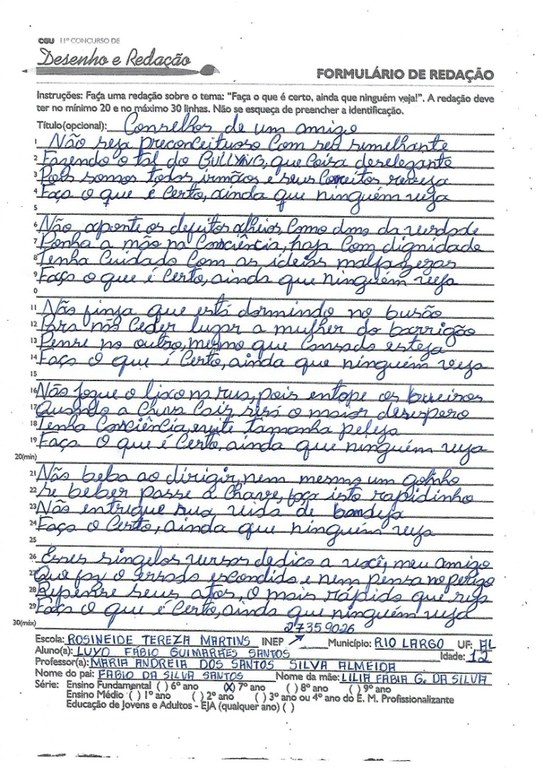 CGU 11º CONCURSO DE
Desenho e Redação
FORMULÁRIO DE REDAÇÃO
Instruções: Faça uma redação sobre o tema: "Faça o que é certo, ainda que ninguém veja!". A redação deve
ter no mínimo 20 e no máximo 30 linhas. Não se esqueça de preencher a identificação.
Título(opcional): Conselhos de um amigo
1 Não seja preconceituoso com seu semelhante
2 Fazendo o tal do BULLYING, que coisa deselegante
3 Pois somos todos irmãos e seus conceitos reveja
4 Faça o que é certo, ainda que ninguém veja
5
6 Não aponte os defeitos alheios, como dono da verdade
7 Ponha a mão na consciência, haja com dignidade
8 Tenha cuidado com as ideias malfazejas
9 Faça o que é certo, ainda que ninguém veja
0
11 Não finja que está dormindo no busão
12 Pra não ceder lugar a mulher do barrigão
13 Pense no outro, mesmo que cansado esteja
14 Faça o que é certo, ainda que ninguém veja
15
16 Não jogue o lixo na rua, pois entope os bueiros
17 Quando a chuva cair será o maior desespero
18 Tenha consciência, evite tamanha peleja
19 Faça o que é certo, ainda que ninguém veja
20(min)
21 Não beba ao dirigir, nem mesmo um golinho
22 Se beber passe a chave, faça isto rapidinho
23 Não entregue sua vida de bandeja
24 Faça o certo, ainda que ninguém veja
25
26 Esses singelos versos dedico a você, meu amigo
27 Que faz o errado escondido e nem pensa no perigo
28 Repense seus atos, o mais rápido que seja
29 Faça o que é certo, ainda que ninguém veja
30(máx) 27359026
Escola: ROSINEIDE TEREZA MARTINS INEP Município: RIO LARGO UF: AL
Aluno(a): LUYO FÁBIO GUIMARÃES SANTOS Idade: 12
Professor(a): MARIA ANDREIA DOS SANTOS SILVA ALMEIDA
Nome do pai: FÁBIO DA SILVA SANTOS Nome da mãe: LILIA FABIA G. DA SILVA
Série: Ensino Fundamental ( ) 6º ano (X) 7º ano ( ) 8º ano ( ) 9º ano
Ensino Médio ( ) 1º ano ( ) 2º ano ( ) 3º ano ou 4º ano do E. M. Profissionalizante
Educação de Jovens e Adultos - EJA (qualquer ano) ( )